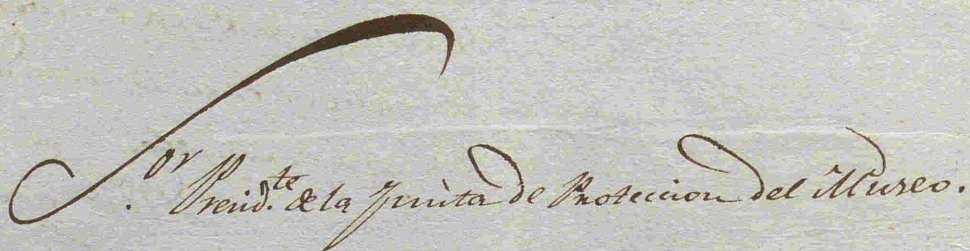 S.or Presid.te de la Junta de Proteccion del Museo.